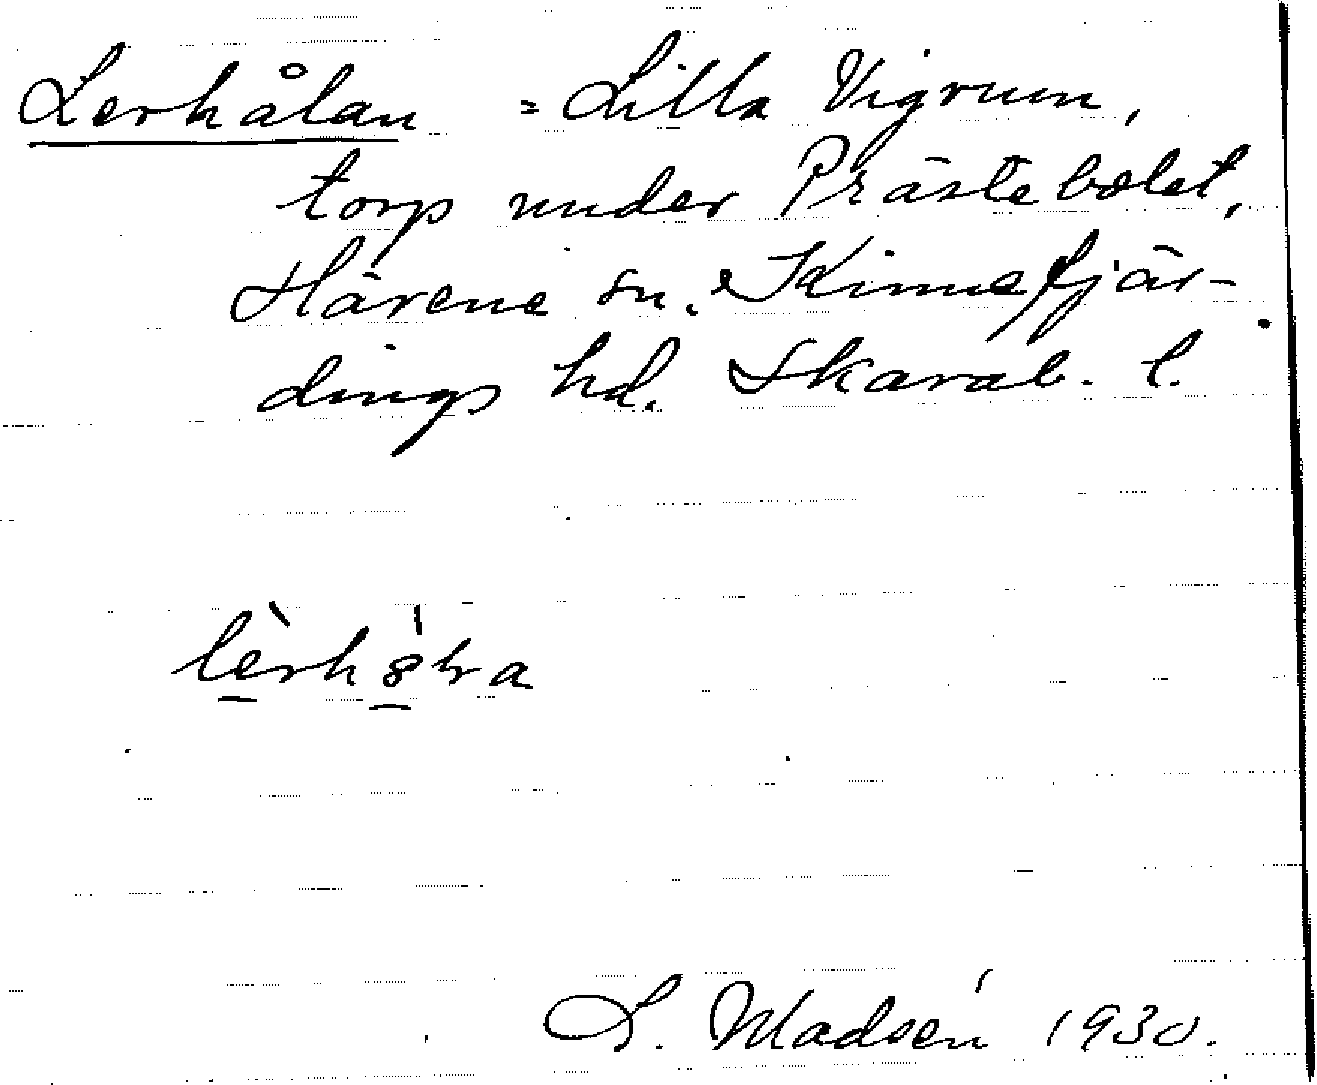 Lerhålan = Lilla Vigrum,
torp under Prästebolet,
Härene sn. Kinnefjär-
dings hd. Skarab. l.
L. Madsén 1930.